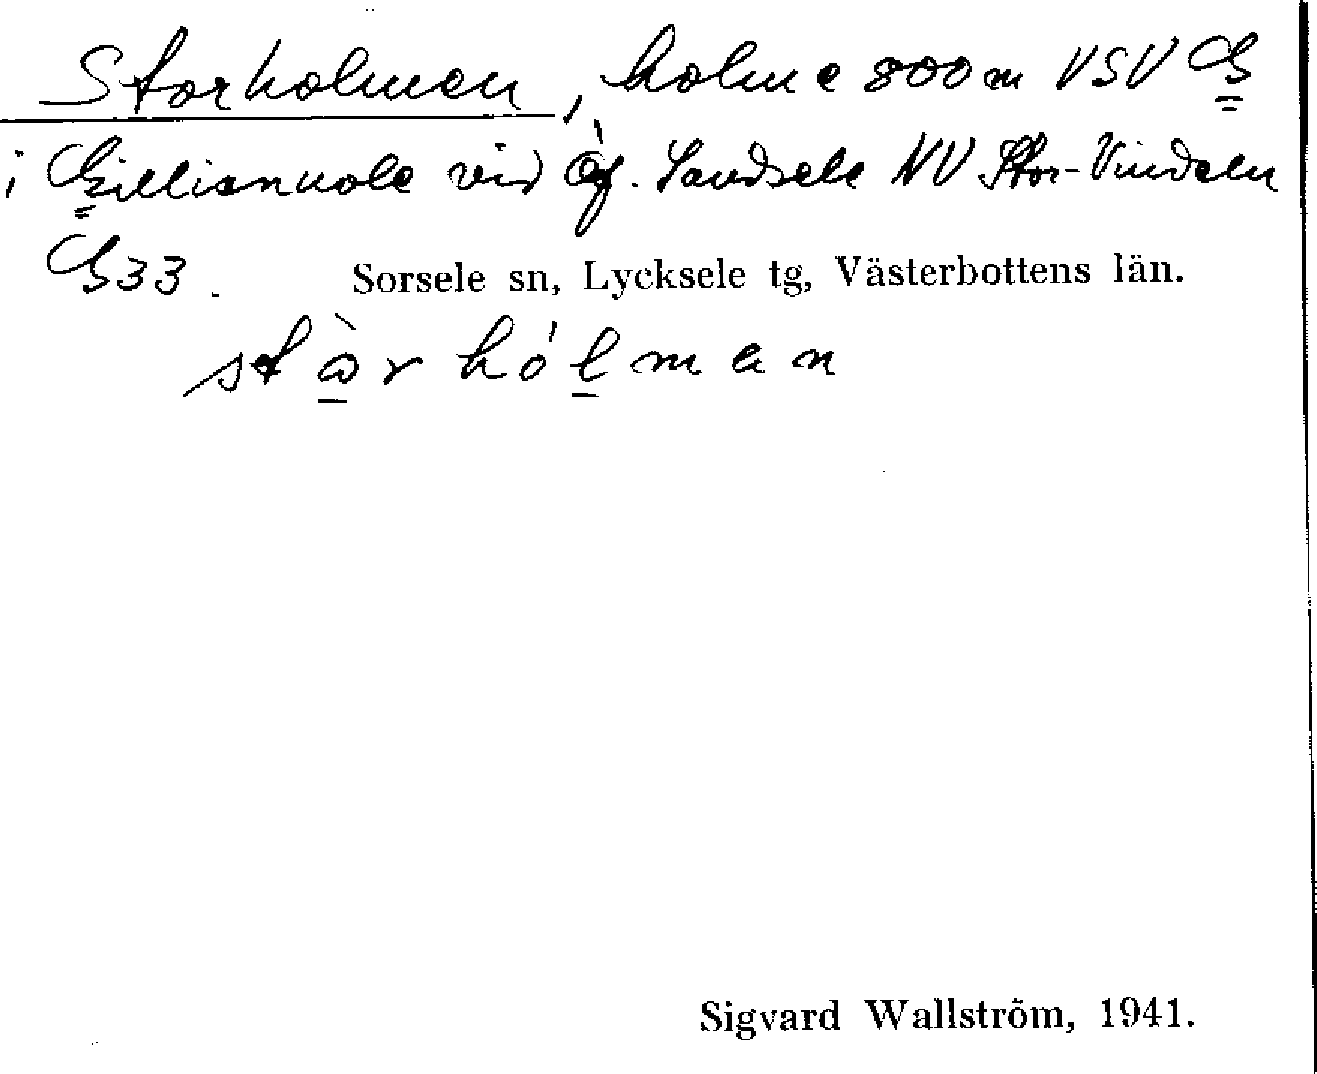 Storholmen, holme 800 m VSV G
i Gillisnuole vid äg. Sandsele NV Stor-Vindeln
G 33.
Sorsele sn, Lycksele tg, Västerbottens län.
stòrhólman
Sigvard Wallström, 1941.